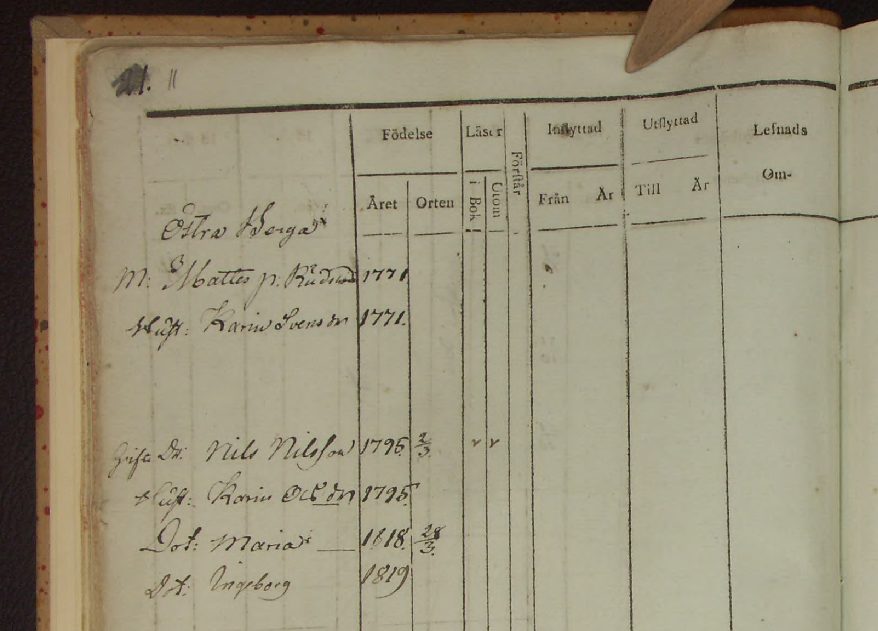 21. 11
Födelse Läser Förstår Inflyttad Utflyttad Lefnads
Om-
Året Orten i Bok Utom Från År Till År
Östra Berga
M: Mattes p: 1771
Hust: Karin Svens dr 1771.
Gift Dr: Nils Nilsson 1795. 2/3. v v
Hust: Karin Ols dr 1795.
Dot: Maria 1818. 28/3.
Dot: Ingeborg 1819